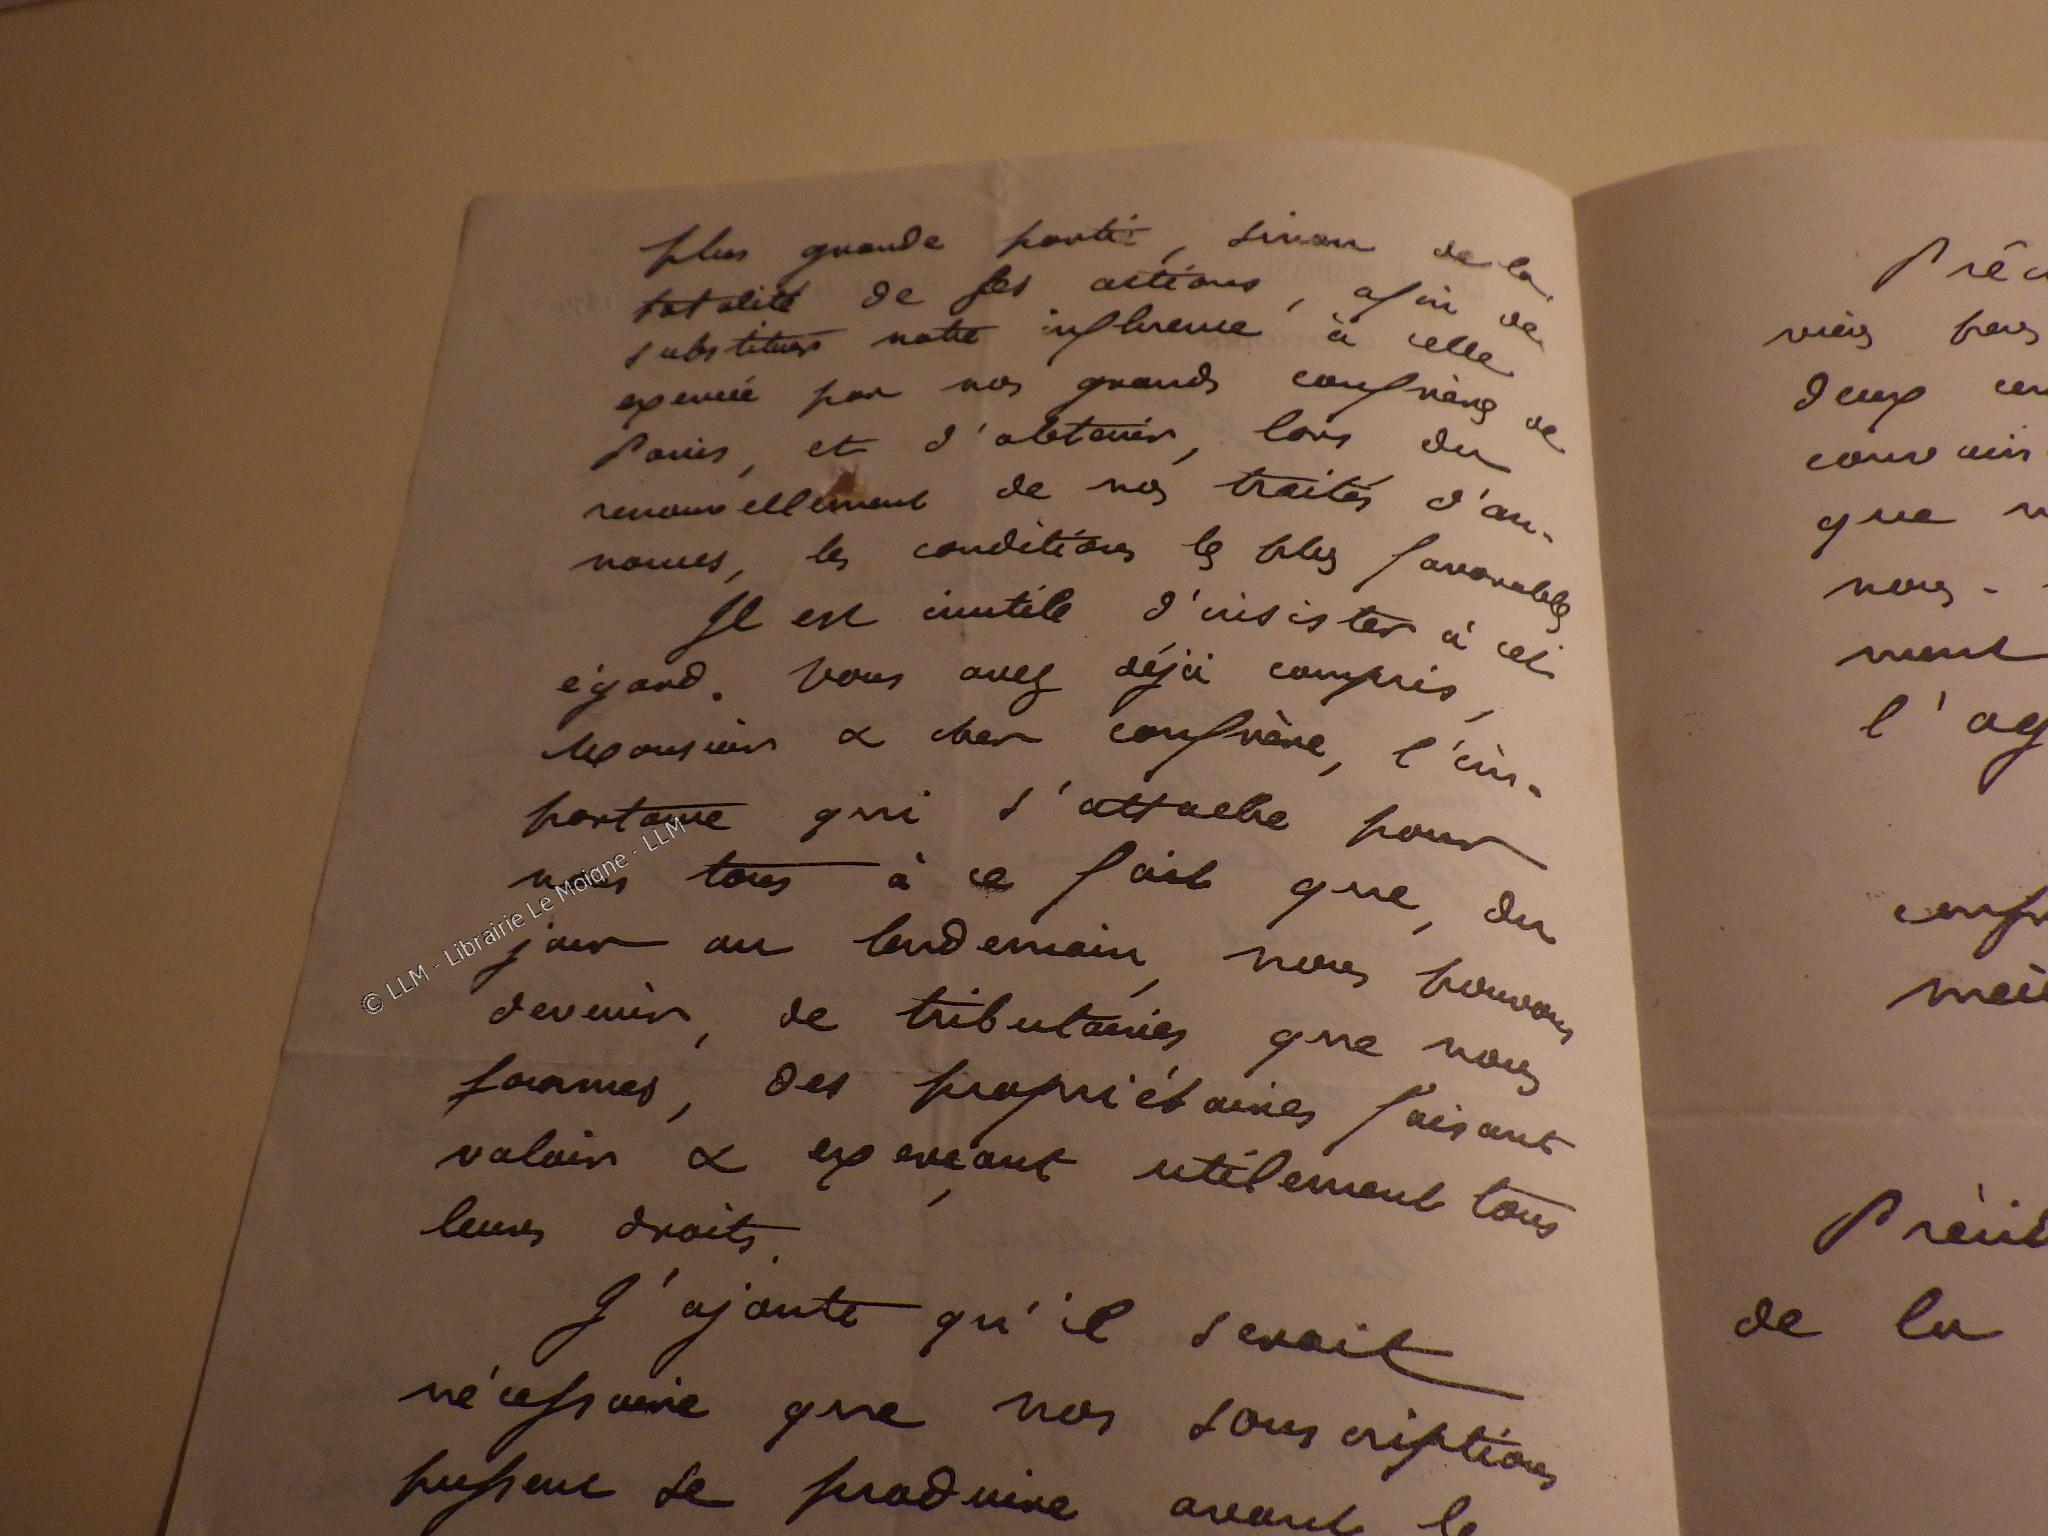 plus grande partie, sinon de la
totalité de ses actions, afin de
substituer notre influence à celle
exercée par nos grands confrères de
Paris, et d'obtenir, lors du
renouvellement de nos traités d'an-
nonces, les conditions les plus favorables
Il est inutile d'insister à cet
égard. Vous avez déjà compris,
Monsieur & cher confrère, l'im-
portance qui s'attache pour
nous tous à ce fait que, du
jour au lendemain, nous pouvons
devenir, de tributaires que nous
sommes, des propriétaires faisant
valoir & exerçant utilement tous
leurs droits.
J'ajoute qu'il serait
nécessaire que nos souscriptions
pussent se produire avant le
deux
que
nous-
ment
l'ag
de la
© LLM - Librairie Le Moigne - LLM